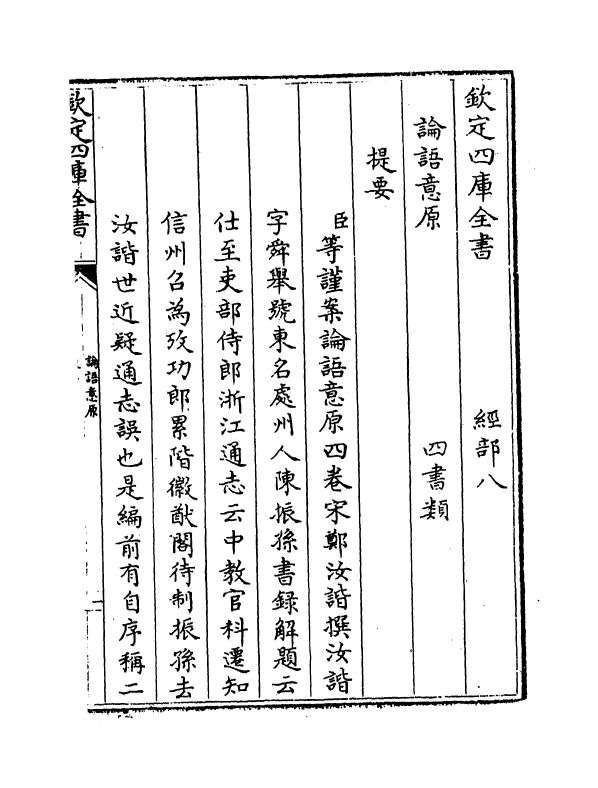 欽定四庫全書 經部八
論語意原 四書類
提要
臣等謹案論語意原四卷宋鄭汝諧撰汝諧
字舜舉號東名處州人陳振孫書録解題云
仕至吏部侍郎浙江通志云中教官科遷知
信州召為攷功郎累階徽猷閣待制振孫去
汝諧世近疑通志誤也是編前有自序稱二
欽定四庫全書
論語意原